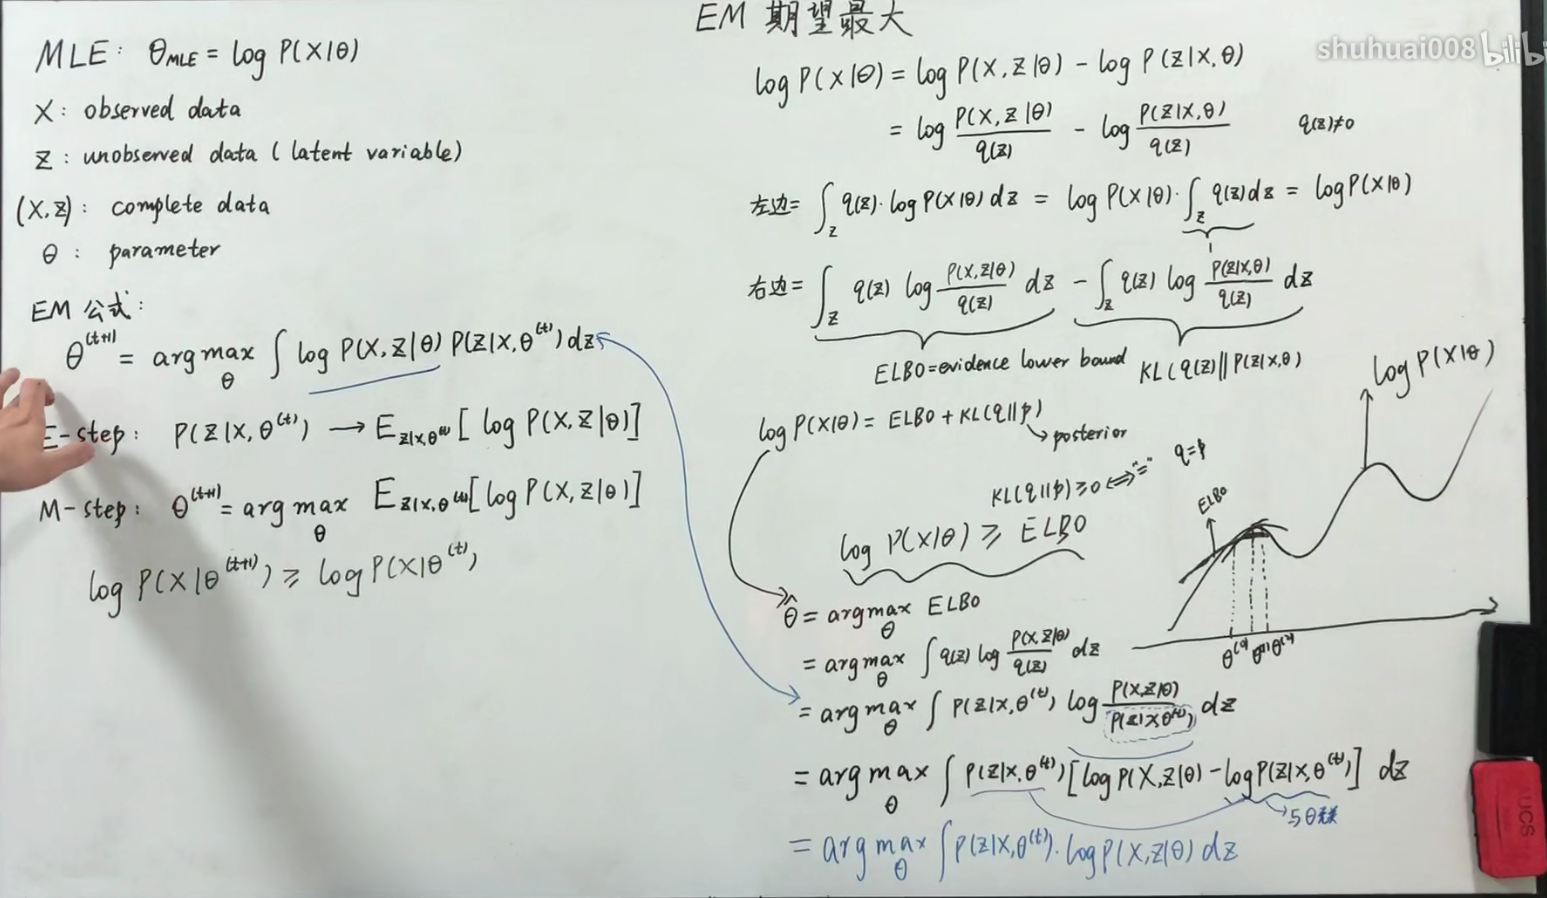 EM 期望最大
shuhuai008 bilibi
MLE: θ_MLE = log P(X|θ)
X: observed data
Z: unobserved data (latent variable)
(X,Z): complete data
θ: parameter
EM 公式:
θ^(t+1) = arg max_θ ∫ log P(X,Z|θ) P(Z|X,θ^(t)) dz
E-step: P(Z|X,θ^(t)) → E_{Z|X,θ^(t)} [log P(X,Z|θ)]
M-step: θ^(t+1) = arg max_θ E_{Z|X,θ^(t)} [log P(X,Z|θ)]
log P(X|θ^(t+1)) ≥ log P(X|θ^(t))
log P(X|θ) = log P(X,Z|θ) - log P(Z|X,θ)
= log P(X,Z|θ)/q(z) - log P(Z|X,θ)/q(z) q(z)≠0
左边= ∫_Z q(z)·log P(X|θ) dz = log P(X|θ)·∫_Z q(z)dz = log P(X|θ)
1
右边= ∫_Z q(z) log P(X,Z|θ)/q(z) dz - ∫_Z q(z) log P(Z|X,θ)/q(z) dz
ELBO=evidence lower bound KL(q(z)||P(Z|X,θ)
log P(X|θ) = ELBO + KL(q||p)
posterior
KL(q||p)≥0 ⟺ "=" q=p
log P(X|θ) ≥ ELBO
θ̂ = arg max_θ ELBO
= arg max_θ ∫ q(z) log P(X,Z|θ)/q(z) dz
= arg max_θ ∫ P(Z|X,θ^(t)) log P(X,Z|θ)/P(Z|X,θ^(t)) dz
= arg max_θ ∫ P(Z|X,θ^(t)) [log P(X,Z|θ) - log P(Z|X,θ^(t))] dz
与θ无关
= arg max_θ ∫ P(Z|X,θ^(t))·log P(X,Z|θ) dz
log P(X|θ)
ELBO
UCS